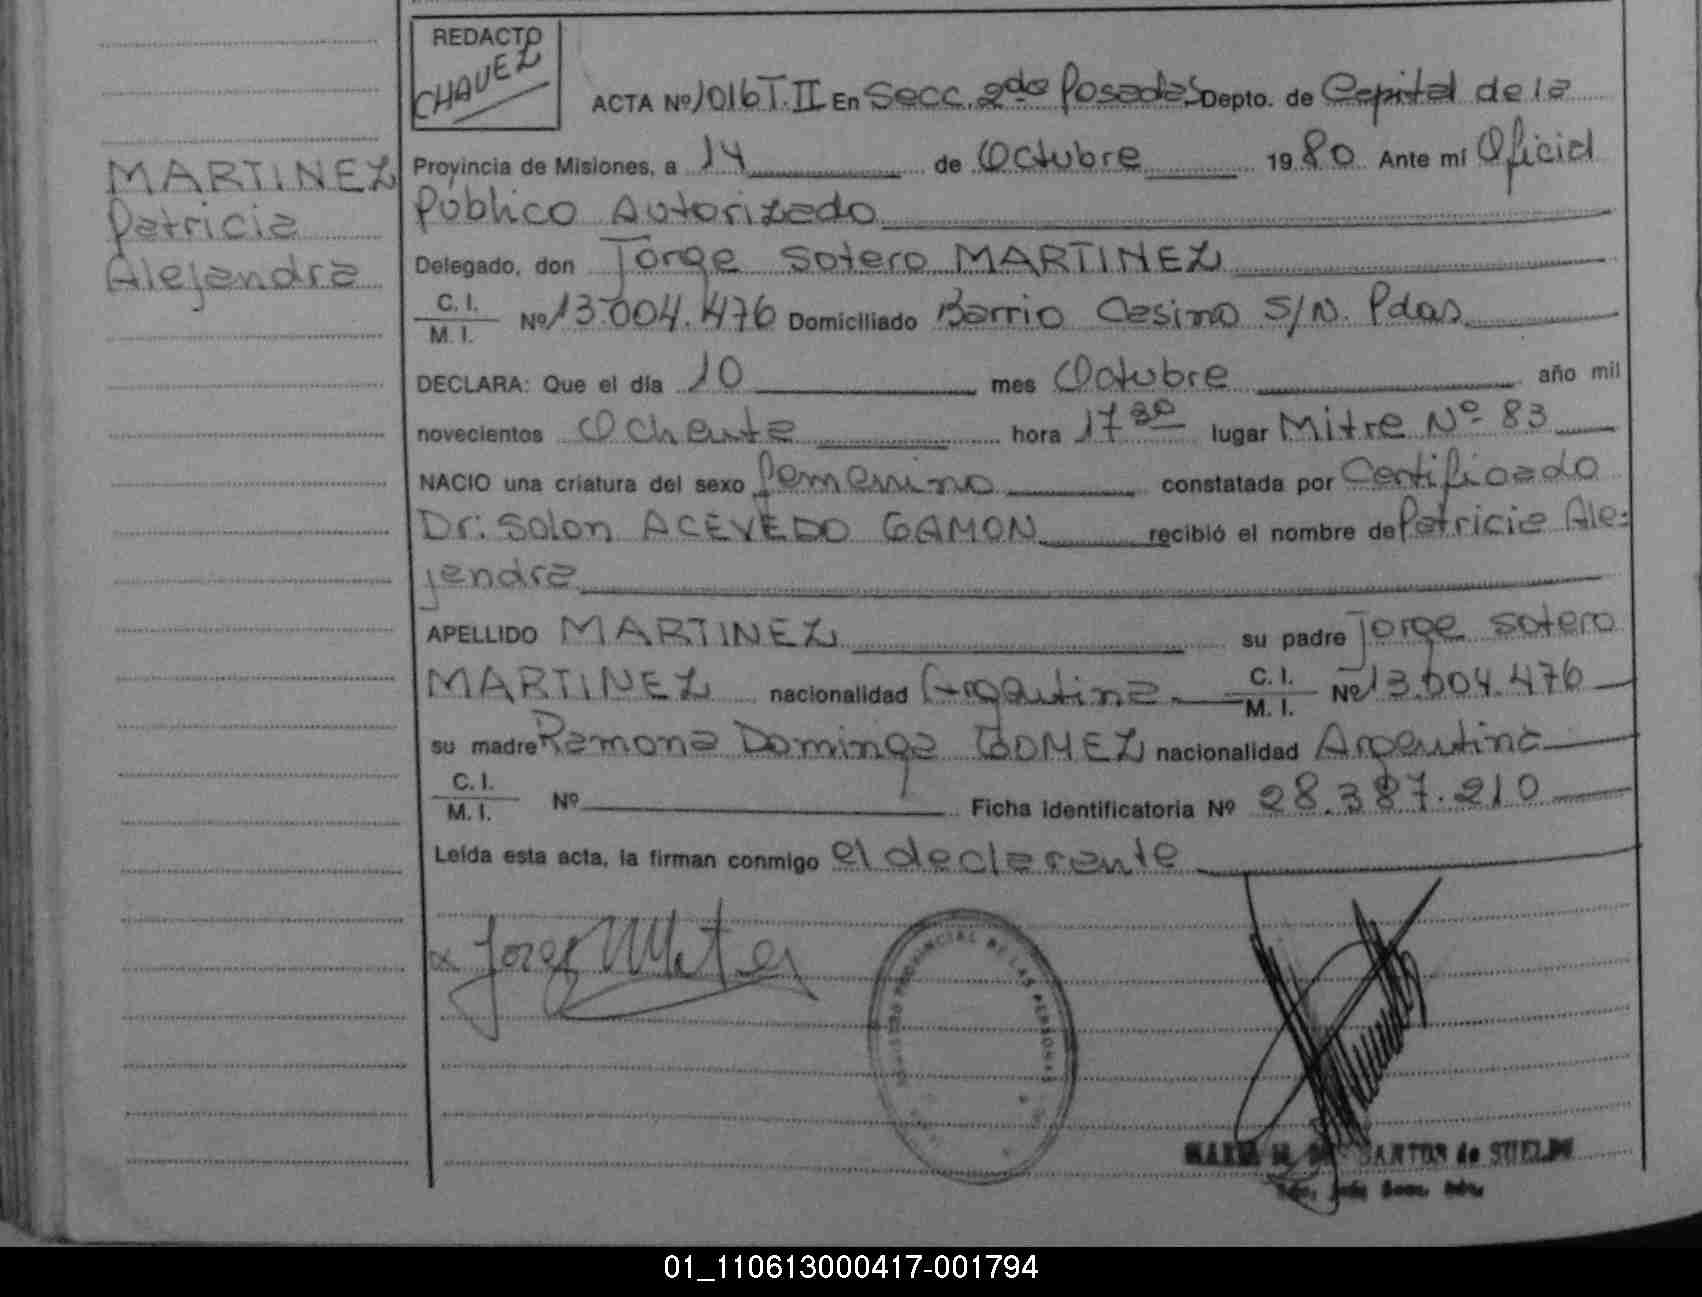 REDACTO
CHAVEZ
ACTA Nº 1016 T.II En Secc. 2da Posadas Depto. de Capital de la
Provincia de Misiones, a 14 de Octubre 1980 Ante mí Oficial
Público Autorizado
Delegado, don Jorge Sotero MARTINEZ
C. I.
M. I. Nº 13.004.476 Domiciliado Barrio Casino S/N. Pdas
DECLARA: Que el día 10 mes Octubre año mil
novecientos Ochenta hora 17 30 lugar Mitre Nº 83
NACIO una criatura del sexo femenino constatada por Certificado
Dr: Solon ACEVEDO GAMON recibió el nombre de Patricia Ale=
jandra
APELLIDO MARTINEZ su padre Jorge Sotero
MARTINEZ nacionalidad Argentina C. I. M. I. Nº 13.004.476
su madre Ramona Dominga GOMEZ nacionalidad Argentina
C. I.
M. I. Nº Ficha identificatoria Nº 28.387.210
Leída esta acta, la firman conmigo el declarante
MARTINEZ
Patricia
Alejandra
PROVINCIAL DE LAS PERSONAS
SANTOS de
01_110613000417-001794